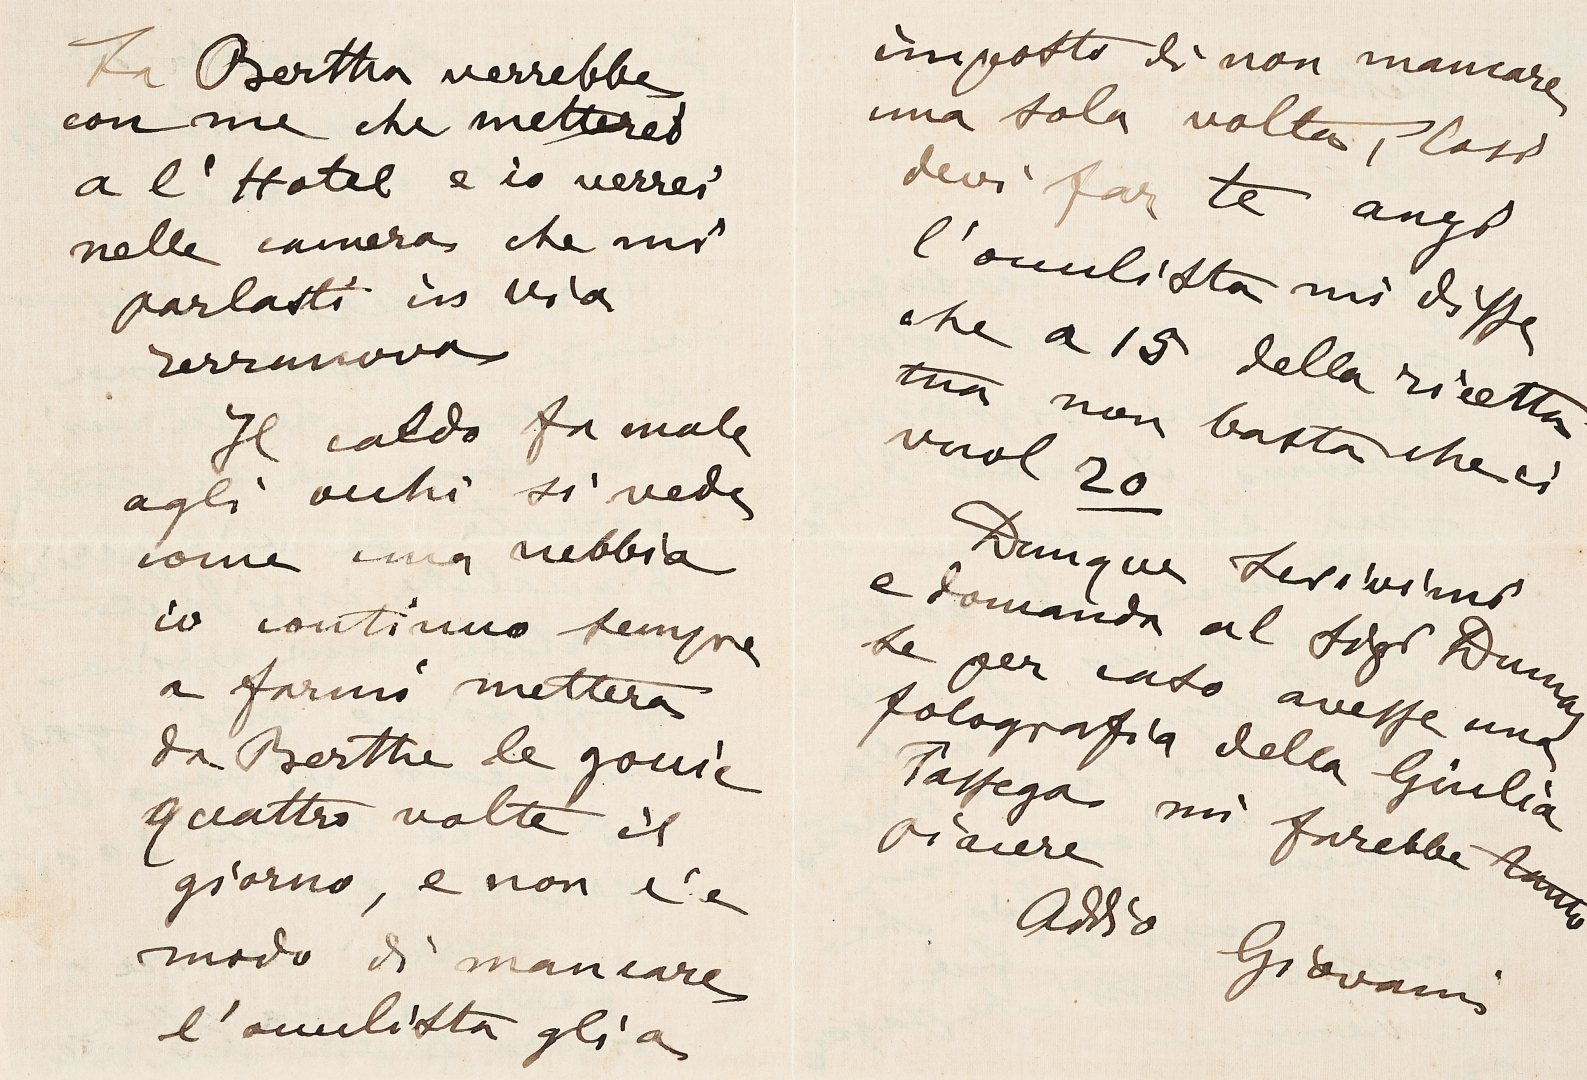 La Bertha verrebbe
con me che metterei
a l'Hotel e io verrei
nelle camera che mi
parlasti in via
Terranova
Il caldo fa male
agli occhi si vede
come una nebbia
io continuo sempre
a farmi mettere
da Berthe le gouie
quattro volte il
giorno, e non c'e
modo di mancare
l'ouulista gli a
imposto di non mancare
una sola volta, Cosi
devi far te angi
l'ouulista mi disse
che a 15 della ricetta
tua non basta che ci
vuol 20
Dunque scrivimi
e domanda al Sigr Dumas
se per caso avesse una
fotografia della Giulia
Tassega mi farebbe tanto
piacere
Addio
Giovanni